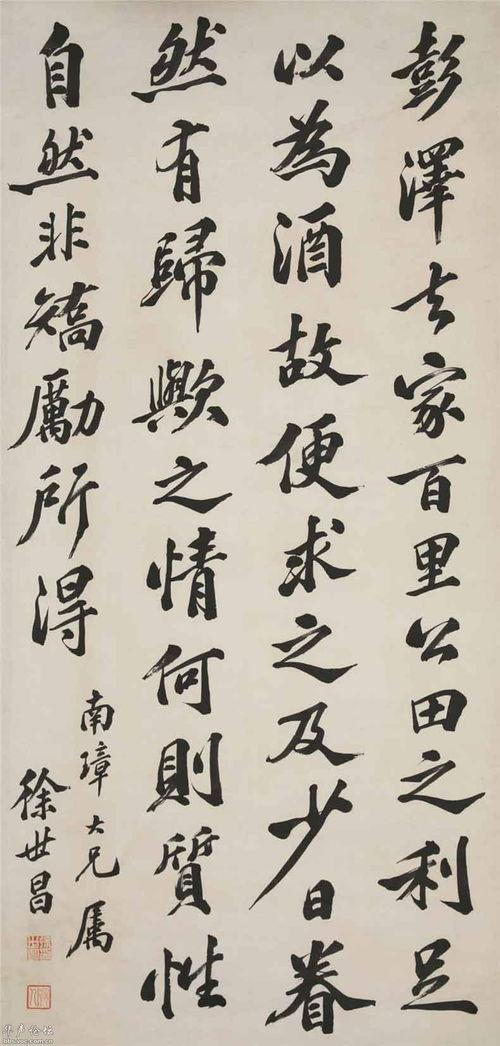 彭澤去家百里公田之利足
以為酒故便求之及少日眷
然有歸歟之情何則質性
自然非矯勵所得
南璋大兄属
徐世昌
华声论坛
bbs.voc.com.cn